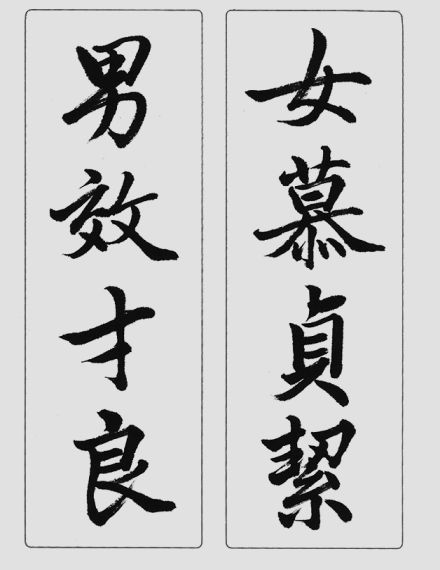 女慕貞絜
男效才良